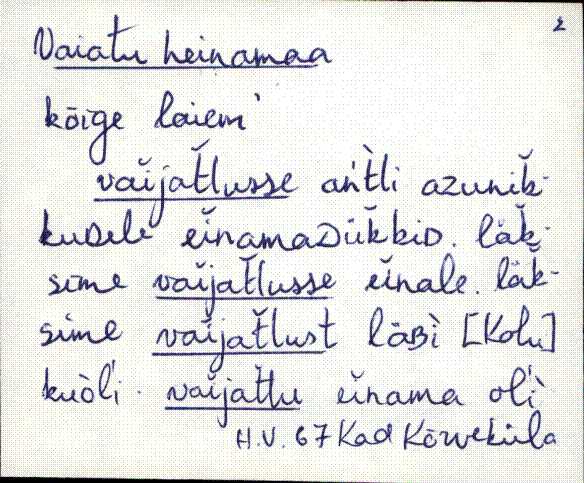 2
Vaiatu heinamaa
kõige laiem'
vaĭjat̆lusse an̆t̀li azunik̆-
kuᴅele ĕinamaᴅük̆kiᴅ. läk̆-
sime vaĭjat̆lusse ĕinale. läk̆-
sime vaĭjat̆lust läʙì [Kolu]
kuòl'i. vaĭjat̆tu ĕinama ol'ì
H.V. 67 Kad Kõrveküla